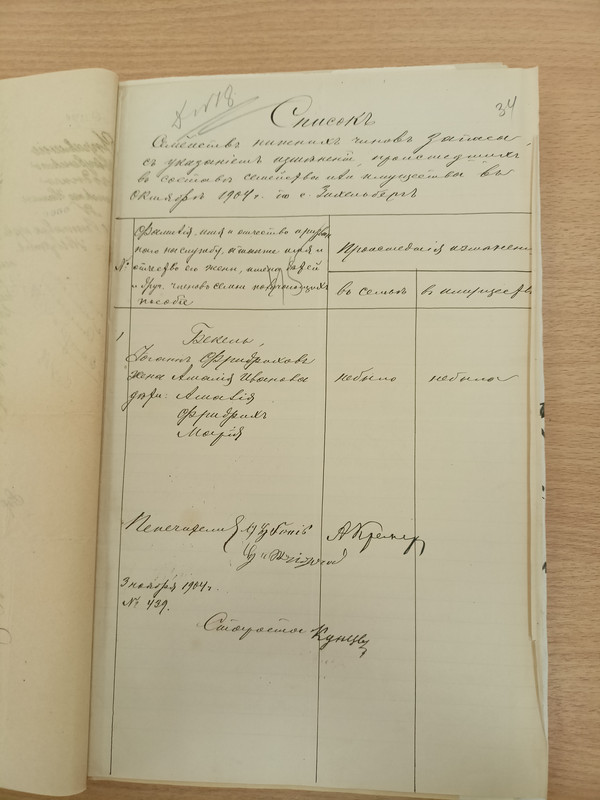 34
Д №18
Списокъ
Семействъ нижнихъ чиновъ запаса,
съ указаніемъ измѣненій, происшедшихъ
въ составѣ семействъ и имущества въ
Октябрѣ 1904 г. по с. Гихельбергъ
№
Фамилія, имя и отчество
наго на службу, а также имя и
отчество его жены, имена дѣтей
и друг. членовъ семьи получающихъ
пособіе
Происшедшія измѣненія
въ семьѣ
въ имуществѣ
1
Бекель,
Іоганъ Фридриховъ
жена Амалія Иванова
дѣти: Амалія
Фридрихъ
Марія
небыло
небыло
Попечители
А Кремер
3 ноября 1904 г.
№ 439.
Староста